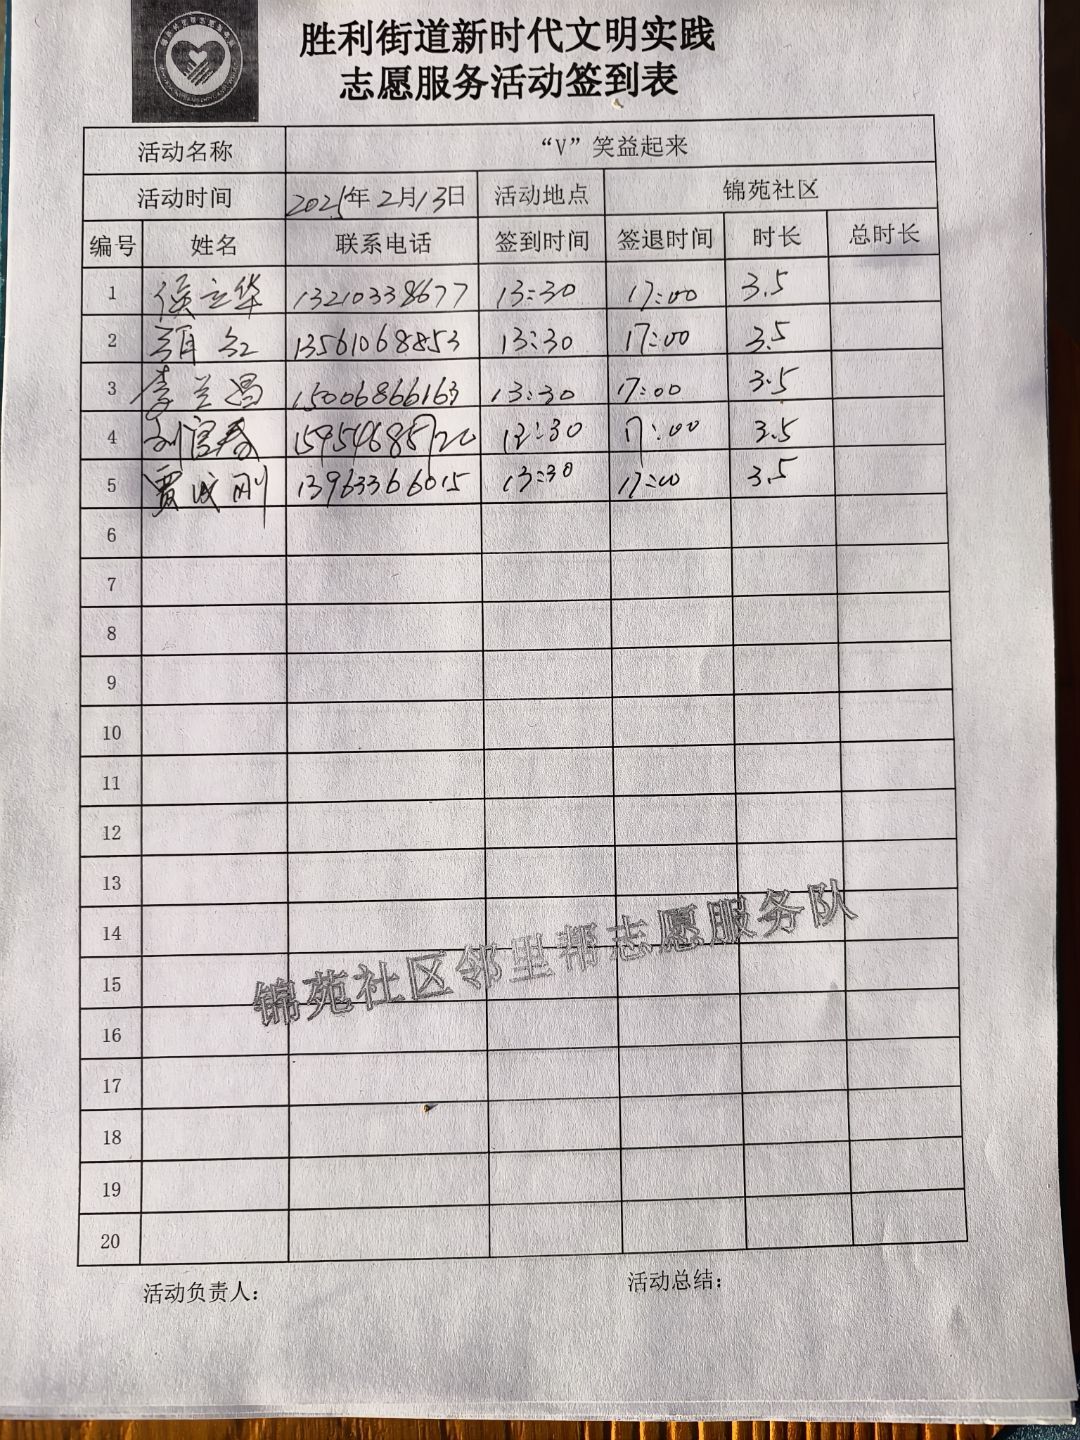 胜利街道新时代文明实践
志愿服务活动签到表
活动名称 “V”笑益起来
活动时间 2025年2月13日 活动地点 锦苑社区
编号 姓名 联系电话 签到时间 签退时间 时长 总时长
1 侯立华 13210338677 13:30 17:00 3.5
2 13561068853 13:30 17:00 3.5
3 李兰昌 15006866163 13:30 17:00 3.5
4 刘官春 13:30 17:00 3.5
5 贾成刚 13963366015 13:30 17:00 3.5
6
7
8
9
10
11
12
13
14
15
16
17
18
19
20
锦苑社区邻里帮志愿服务队
活动负责人: 活动总结: